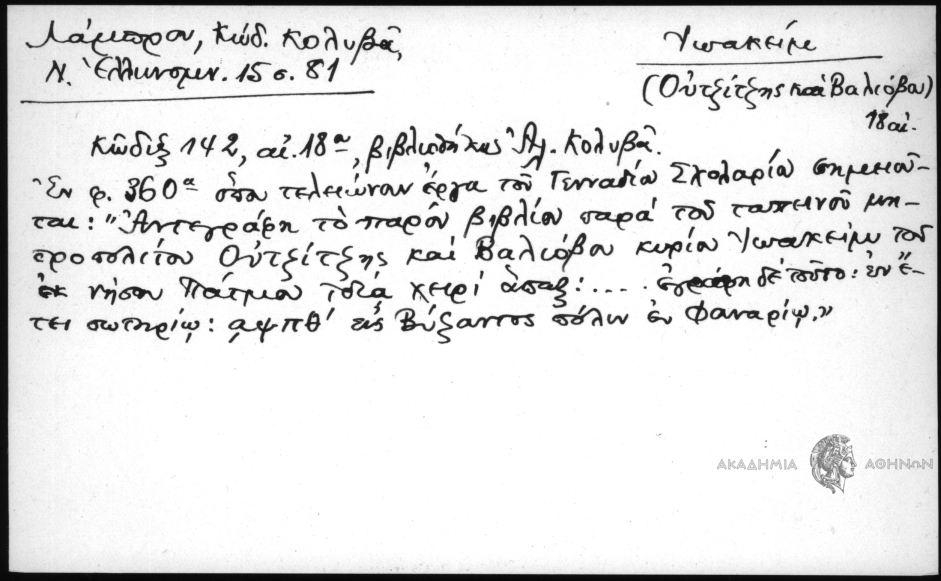 Λάμπρου, Κώδ. Κολυβᾶ,
Ν. Ἑλληνομν. 15 σ. 81
Ἰωακείμ
(Οὐτζίτζης καὶ Βαλιόβου)
18 αἰ.
Κῶδιξ 142, αἰ. 18ος, βιβλιοθήκης Ἀλ. Κολυβᾶ.
Ἐν φ. 360α ὅπου τελειώνουν ἔργα τοῦ Γενναδίου Σχολαρίου σημειοῦ-
ται: "Ἀντεγράφη τὸ παρὸν βιβλίον παρὰ τοῦ ταπεινοῦ μη-
τροπολίτου Οὐτζίτζης καὶ Βαλιόβου κυρίου Ἰωακεὶμ τοῦ
ἐκ νήσου Πάτμου ἰδίᾳ χειρὶ ἅπαξ: .... ἐγράφη δὲ τοῦτο: ἐν ἔ-
τει σωτηρίῳ: ͵αψπθʹ εἰς Βύζαντος πόλιν ἐν Φαναρίῳ."
ΑΚΑΔΗΜΙΑ ΑΘΗΝΩΝ